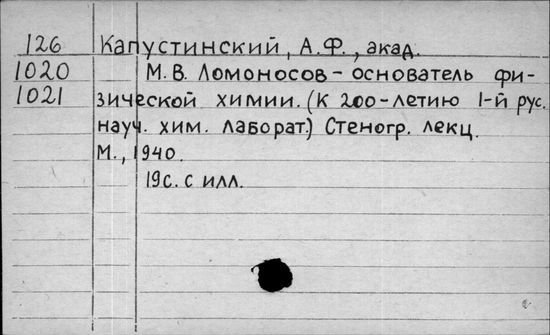 126 Капустинский, А.Ф., акад.
1020 М.В. Ломоносов - основатель фи-
1021 зической химии. (К 200-летию 1-й рус.
науч. хим. лаборат.) Стеногр. лекц.
М., 1940.
19с. с илл.